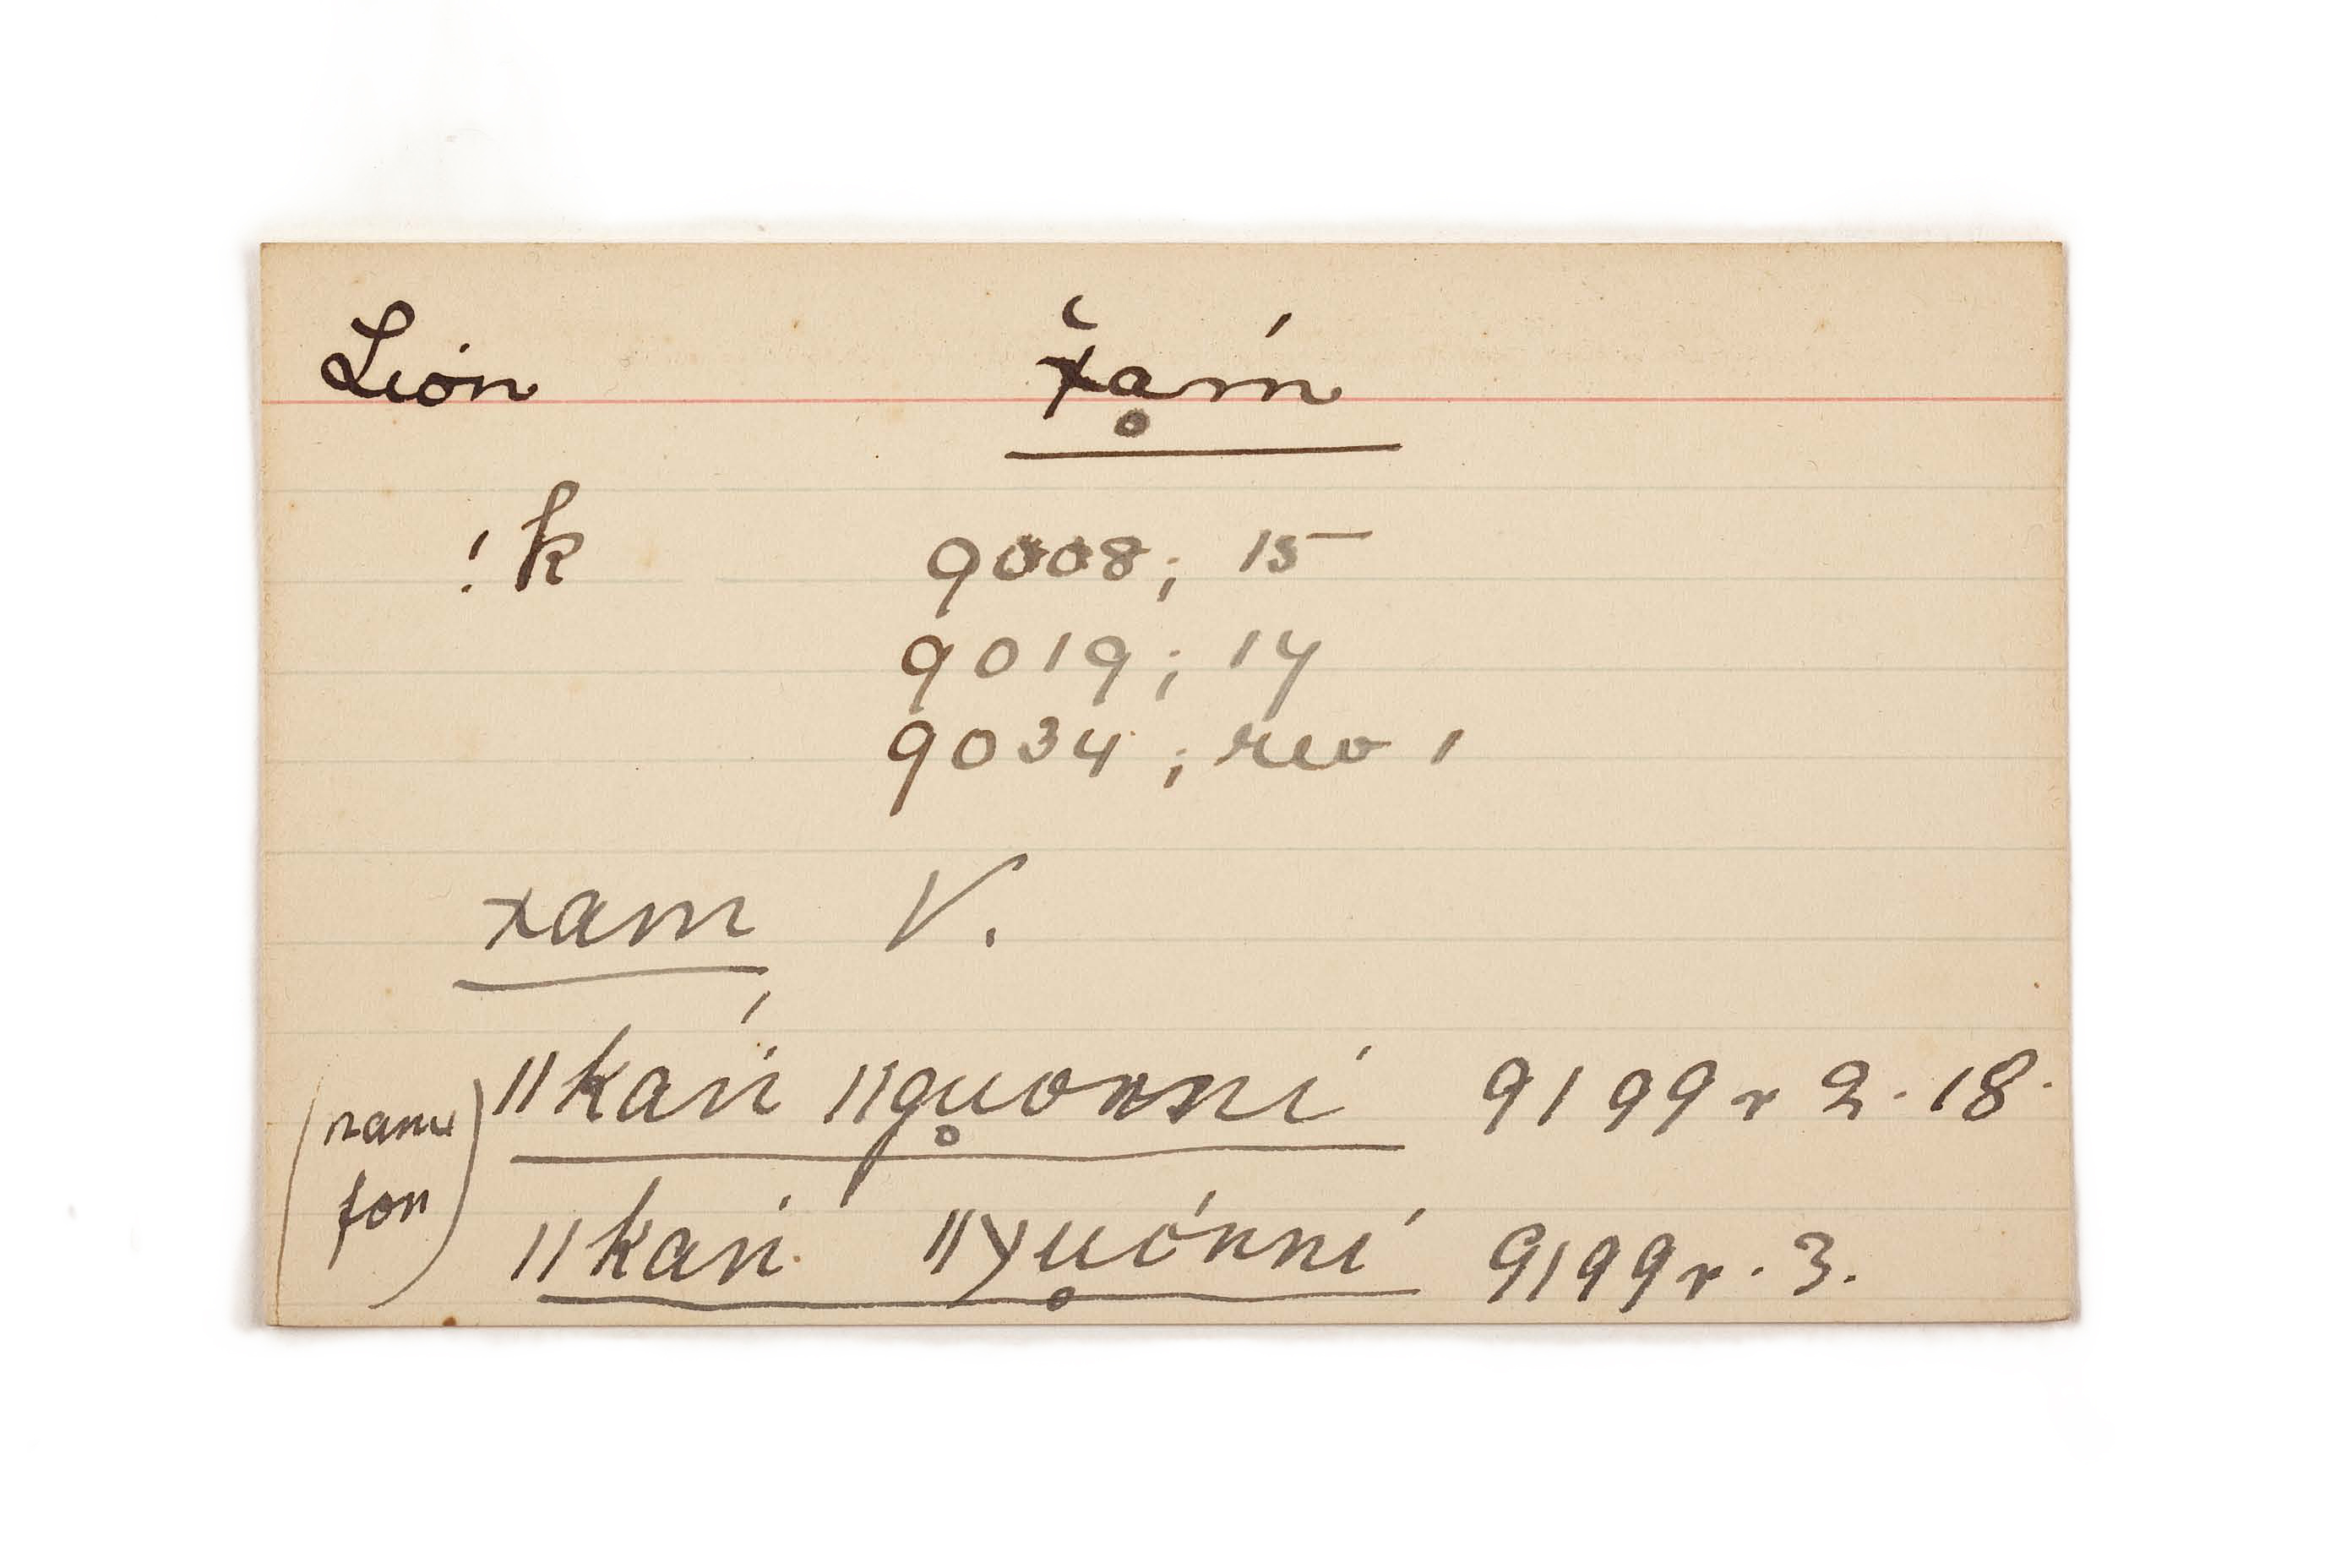 Lion χ̆ḁḿ
!k 9008; 15
9019; 14
9034; rev 1
χam V.
(name for) ǁkáṅ ǁgu̥onní 9199 r 2. 18.
ǁkań ǁγu̥ónní 9199 r. 3.